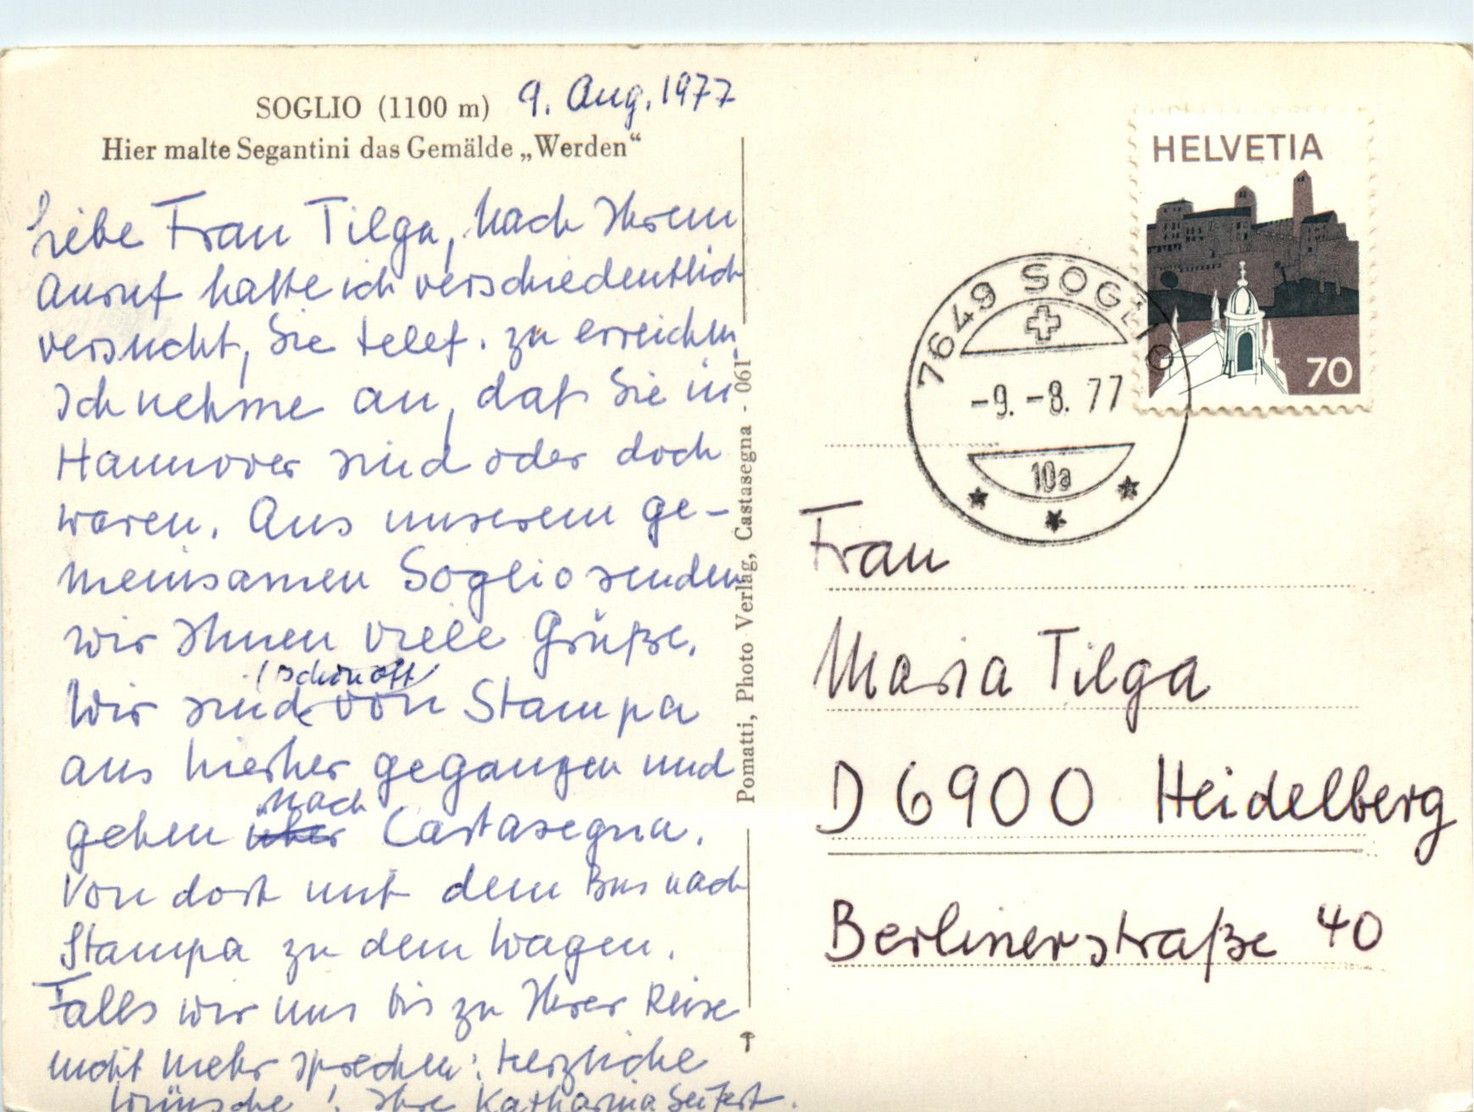 SOGLIO (1100 m) 9. Aug. 1977
Hier malte Segantini das Gemälde „Werden“
Liebe Frau Tilga, Nach Ihrem
Anruf hatte ich verschiedentlich
versucht, Sie telef. zu erreichen.
Ich nehme an, daß Sie in
Hannover sind oder doch
waren. Aus unserem ge-
meinsamen Soglio senden
wir Ihnen viele Grüße.
(schon oft)
Wir sind von Stampa
aus hierher gegangen und
nach
gehen über Castasegna.
Von dort mit dem Bus nach
Stampa zu dem Wagen.
Falls wir uns bis zu Ihrer Reise
nicht mehr sprechen: herzliche
Wünsche! Ihre Katharina Seifert.
Pomatti, Photo Verlag, Castasegna - 061
HELVETIA
70
7649 SOGLIO
-9.-8.77
10a
Frau
Maria Tilga
D 6900 Heidelberg
Berlinerstraße 40